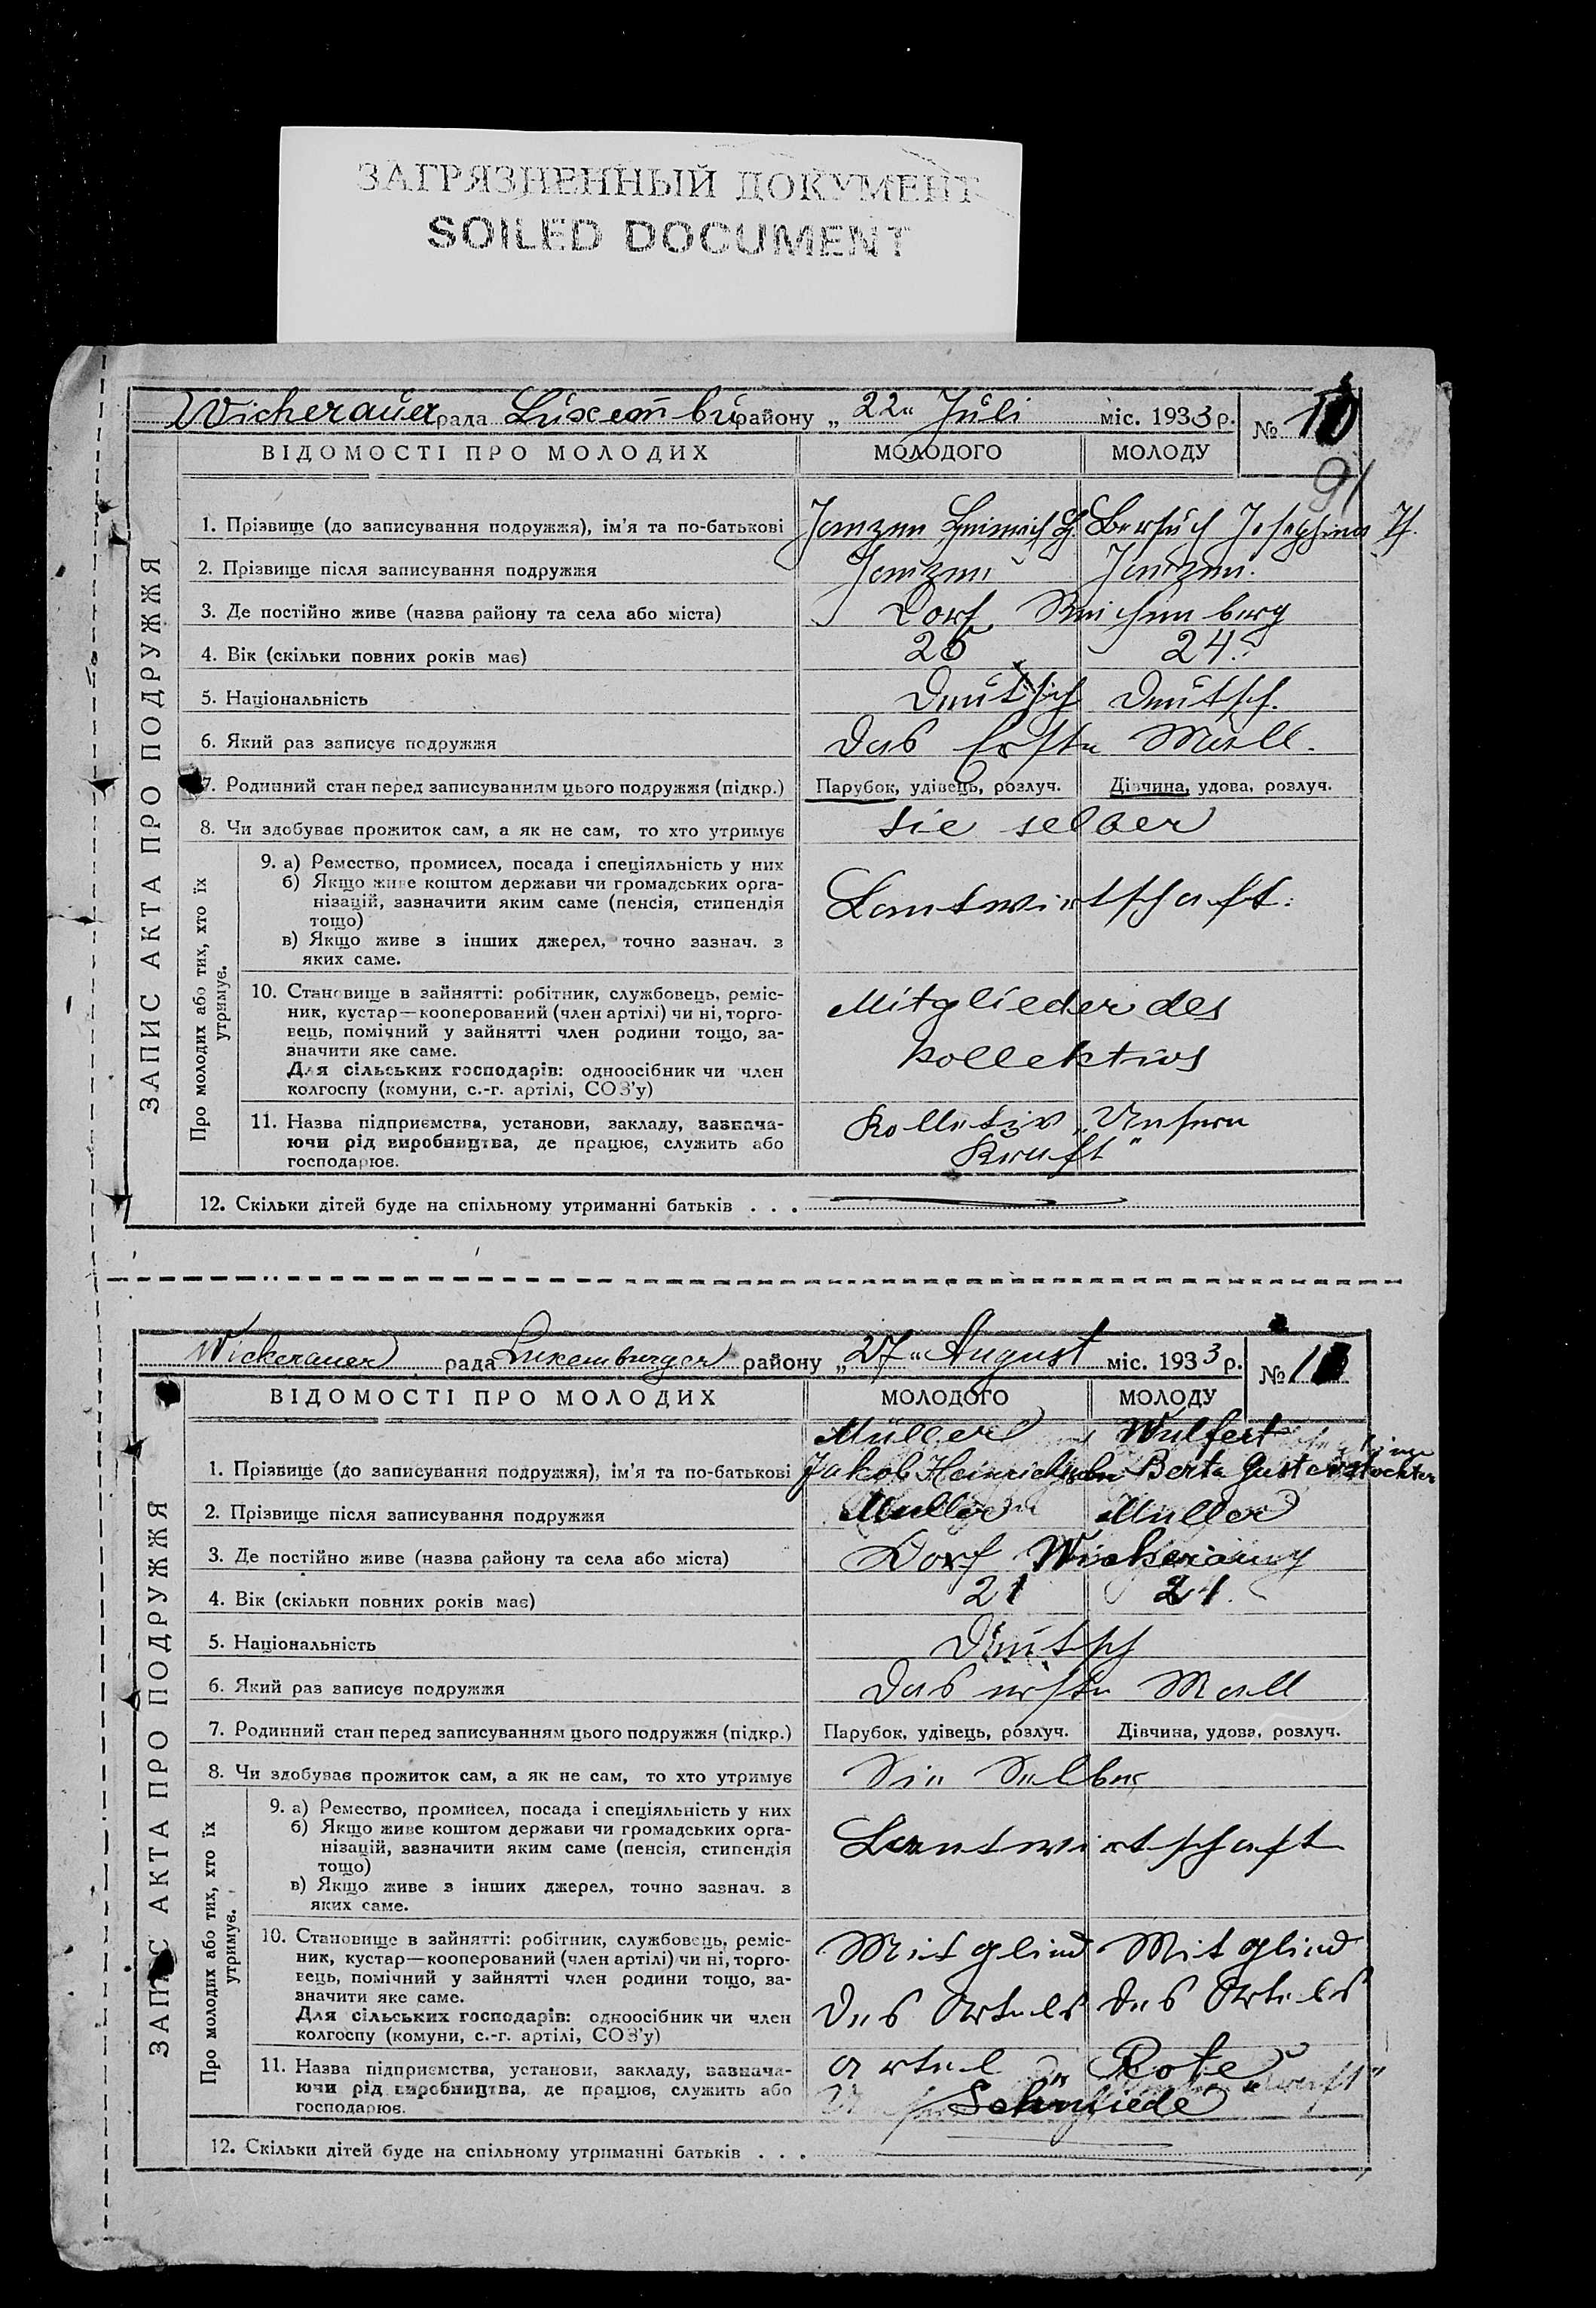 ЗАГРЯЗНЕННЫЙ ДОКУМЕНТ
SOILED DOCUMENT
Wickerauer рада Luxemбu району „22“ Juli міс. 1933 р. №
91
ВІДОМОСТІ ПРО МОЛОДИХ МОЛОДОГО МОЛОДУ
ЗАПИС АКТА ПРО ПОДРУЖЖЯ
1. Прізвище (до записування подружжя), ім’я та по-батькові Janzen Heinrich H. Josephine
2. Прізвище після записування подружжя Janzen Janzen.
3. Де постійно живе (назва району та села або міста) Dorf Reichenberg
4. Вік (скільки повних років має) 24.
5. Національність Deutsch Deutsch.
6. Який раз записує подружжя Das Erste Mall.
7. Родинний стан перед записуванням цього подружжя (підкр.) Парубок, удівець, розлуч. Дівчина, удова, розлуч.
8. Чи здобуває прожиток сам, а як не сам, то хто утримує Sie selber
Про молодих або тих, хто їх
утримує.
9. а) Ремество, промисел, посада і спеціяльність у них
б) Якщо живе коштом держави чи громадських орга-
нізацій, зазначити яким саме (пенсія, стипендія Lantwirtschaft.
тощо)
в) Якщо живе з інших джерел, точно зазнач. з
яких саме.
10. Становище в зайнятті: робітник, службовець, реміс- Mitglieder des
ник, кустар—кооперований (член артілі) чи ні, торго-
вець, помічний у зайнятті член родини тощо, за-
значити яке саме. kollektivs
Для сільських господарів: одноосібник чи член
колгоспу (комуни, с.-г. артілі, СОЗ’у)
11. Назва підприємства, установи, закладу, зазнача- Kollektiv „Unsere
ючи рід виробництва, де працює, служить або Kraft“
господарює.
12. Скільки дітей буде на спільному утриманні батьків . . .
Wickerauer рада Luxemburger району „27“ August міс. 1933 р. №
ВІДОМОСТІ ПРО МОЛОДИХ МОЛОДОГО МОЛОДУ
ЗАПИС АКТА ПРО ПОДРУЖЖЯ
Müller Wulfert
1. Прізвище (до записування подружжя), ім’я та по-батькові Jakob Heinrichsohn Berta Gustavstochter
2. Прізвище після записування подружжя Müller Müller
3. Де постійно живе (назва району та села або міста) Dorf Wickerau
4. Вік (скільки повних років має) 21 21
5. Національність Deutsch
6. Який раз записує подружжя Das erste Mall
7. Родинний стан перед записуванням цього подружжя (підкр.) Парубок, удівець, розлуч. Дівчина, удова, розлуч.
8. Чи здобуває прожиток сам, а як не сам, то хто утримує Sie Selber
Про молодих або тих, хто їх
утримує.
9. а) Ремество, промисел, посада і спеціяльність у них
б) Якщо живе коштом держави чи громадських орга-
нізацій, зазначити яким саме (пенсія, стипендія Lantwirtschaft
тощо)
в) Якщо живе з інших джерел, точно зазнач. з
яких саме.
10. Становище в зайнятті: робітник, службовець, реміс- Mitglied Mitglied
ник, кустар—кооперований (член артілі) чи ні, торго-
вець, помічний у зайнятті член родини тощо, за-
значити яке саме. des Artels des Artels
Для сільських господарів: одноосібник чи член
колгоспу (комуни, с.-г. артілі, СОЗ’у)
11. Назва підприємства, установи, закладу, зазнача- artel „Rote
ючи рід виробництва, де працює, служить або Schmiede“
господарює.
12. Скільки дітей буде на спільному утриманні батьків . . .